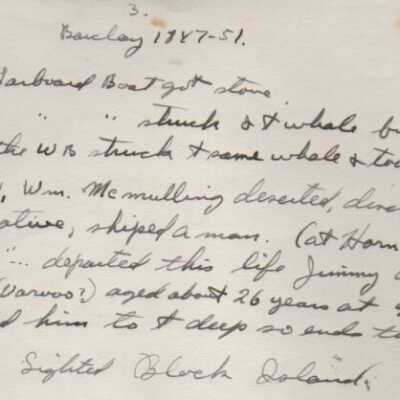 3.
Barclay 1847-51.
Larboard Boat got stove.
" " struck & t whale bu
the WB struck t same whale & too
, Wm. Mcmulling deserted, disc
ative, shiped a man. (at Horn
"... departed this life Jimmy
(Varwoo?) aged about 26 years at
d him to t deep so ends t
Sighted Block Island.